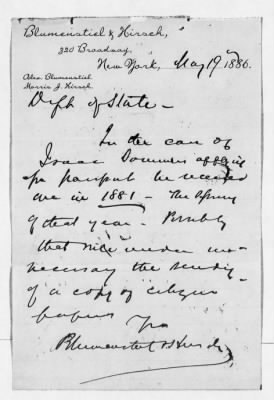 Blumenstiel & Hirsch,
320 Broadway,
New York, May 19th 1886.
Alex. Blumenstiel
Morris J. Hirsch
Dept of State –
In the case of
Isaac Sommer
for passport he received
one in 1881 – The Spring
of that year – Possibly
that will render un-
necessary the sending
of a copy of citizens
papers Yrs
Blumenstiel & Hirsch